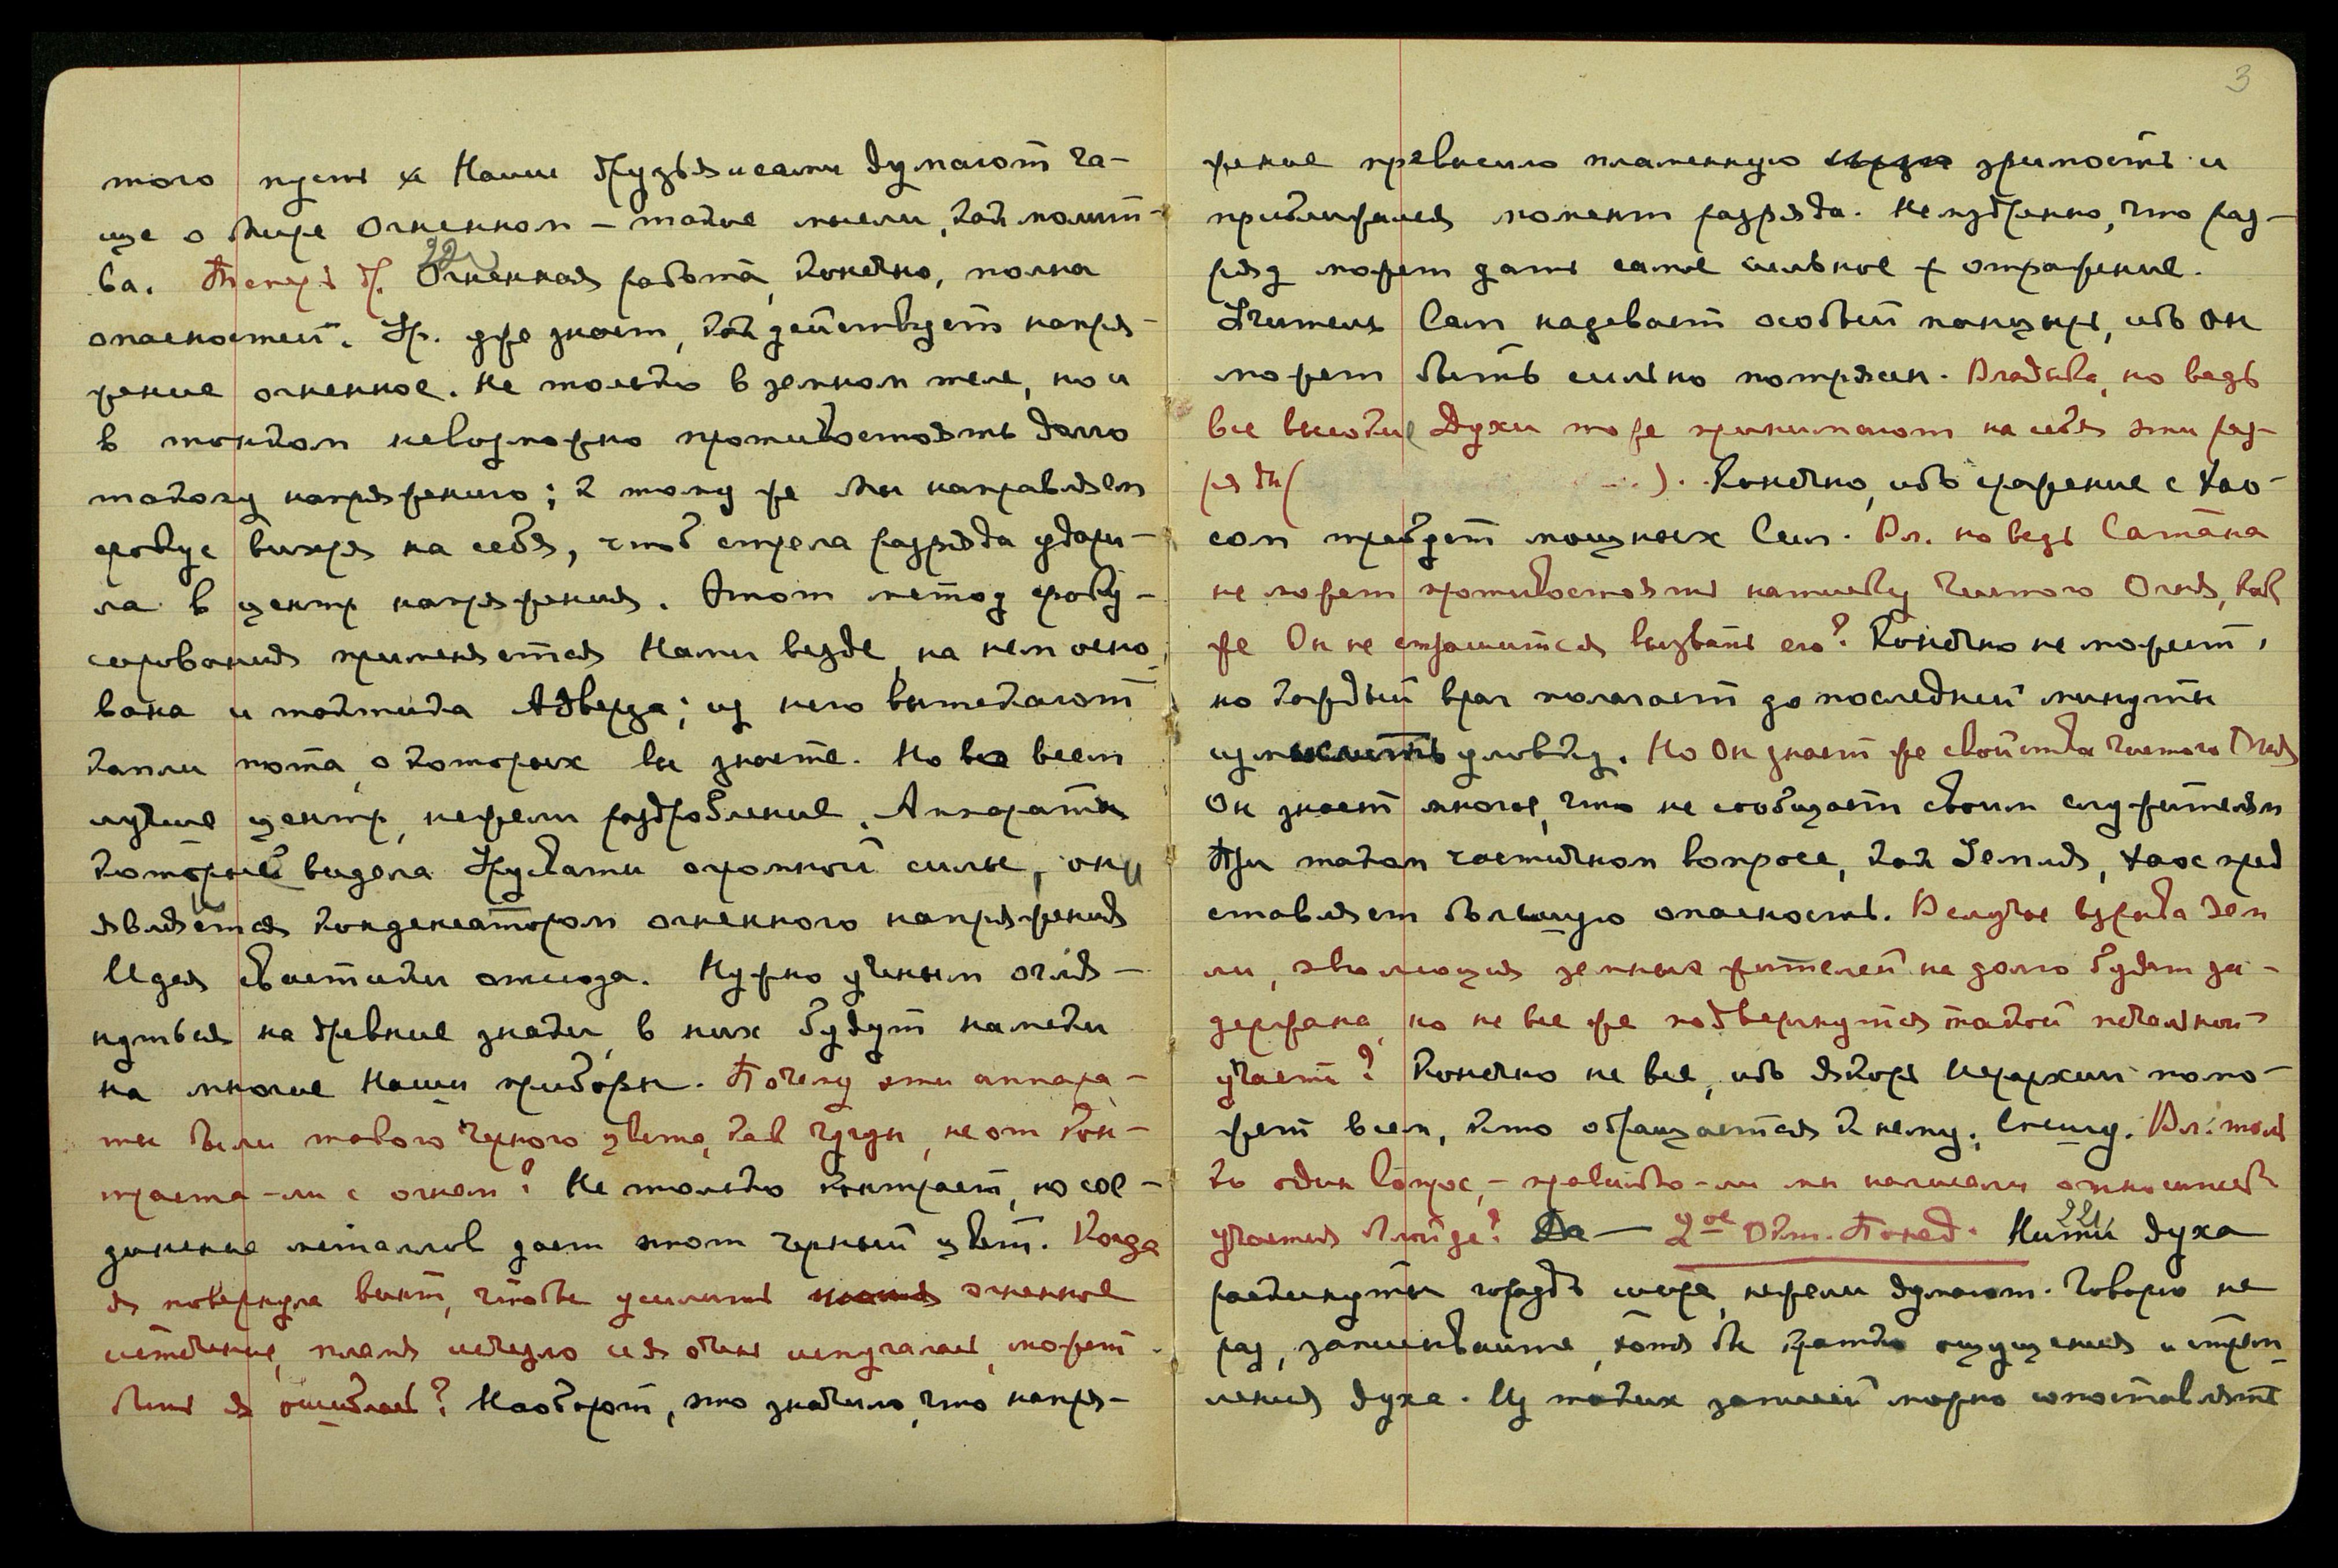 того пусть и Наши друзья и сами думают ча-
ще о Мире Огненном – такие мысли, как молит-
ва. Теперь др. Огненная работа, конечно, полна
22
опасностей. Ур. уже знает, как действует напря-
жение огненное. Не только в земном теле, но и
в тонком невозможно противостоять долго
такому напряжению; к тому же Мы направляем
фокус вихря на себя, чтоб стрела разряда удари-
ла в центр напряжения. Этот метод фоку-
сирования применяется Нами везде, на нем осно-
вана и тактика Адверза; из него вытекают
капли пота, о которых вы знаете. Но во всем
лучше центр, нежели раздробление. Аппараты
которые видела Урусвати огромной силы, они
являются конденсатором огненного напряжения
Идея свастики отсюда. Нужно ученым огля-
нуться на древние знаки, в них будут намеки
на многие Наши приборы. Почему эти аппара-
ты были такого черного цвета, как чугун, не от кон-
траста-ли с огнем? Не только контраст, но сое-
динение металлов дает этот черный цвет. Когда
я повернула винт, чтобы усилить огненное
истечение, пламя исчезло и я очень испугалась, может
быть я ошиблась? Наоборот, это значило, что напря-
3
жение превысило пламенную зримость и
приближался момент разряда. Немудренно, что раз-
ряд может дать самое сильное отражение.
Учитель Сам надевает особый панцырь, ибо Он
может быть сильно потрясен. Владыка, но ведь
все высокие Духи тоже принимают на себя эти раз-
ряды( ). Конечно, ибо сражение с Хао-
сом требует мощных Сил. Вл. но ведь Сатана
не может противостоять натиску Чистого Огня, как
же Он не страшится вызвать его? Конечно не может,
но каждый враг полагает до последней минуты
измыслить уловку. Но Он знает же свойства чистого Огня
Он знает многое, что не сообщает своим служителям
При таком частичном вопросе, как Земля, Хаос пред
ставляет большую опасность. В случае взрыва Зем
ли, эволюция земных жителей на долго будет за-
держана, но не все же подвергнутся такой печальной
участи? Конечно не все, ибо якорь Иерархии помо-
жет всем, кто обращается к нему. Спешу. Вл. толь
ко один вопрос, – правильно-ли мы написали относительно
участия Ллойда? Да — 2ое Окт. Понед. Нити духа
22
раскинуты гораздо шире, нежели думают. Говорю не
раз, записывайте, хотя бы кратко ощущения и стрем
ления духа. Из таких записей можно сопоставлять